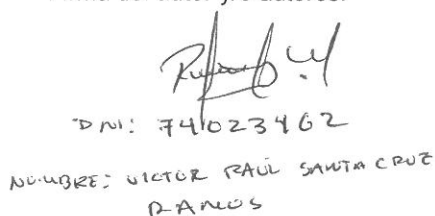 DNI: 74023462
NOMBRE: VICTOR RAÚL SANTA CRUZ
RAMOS